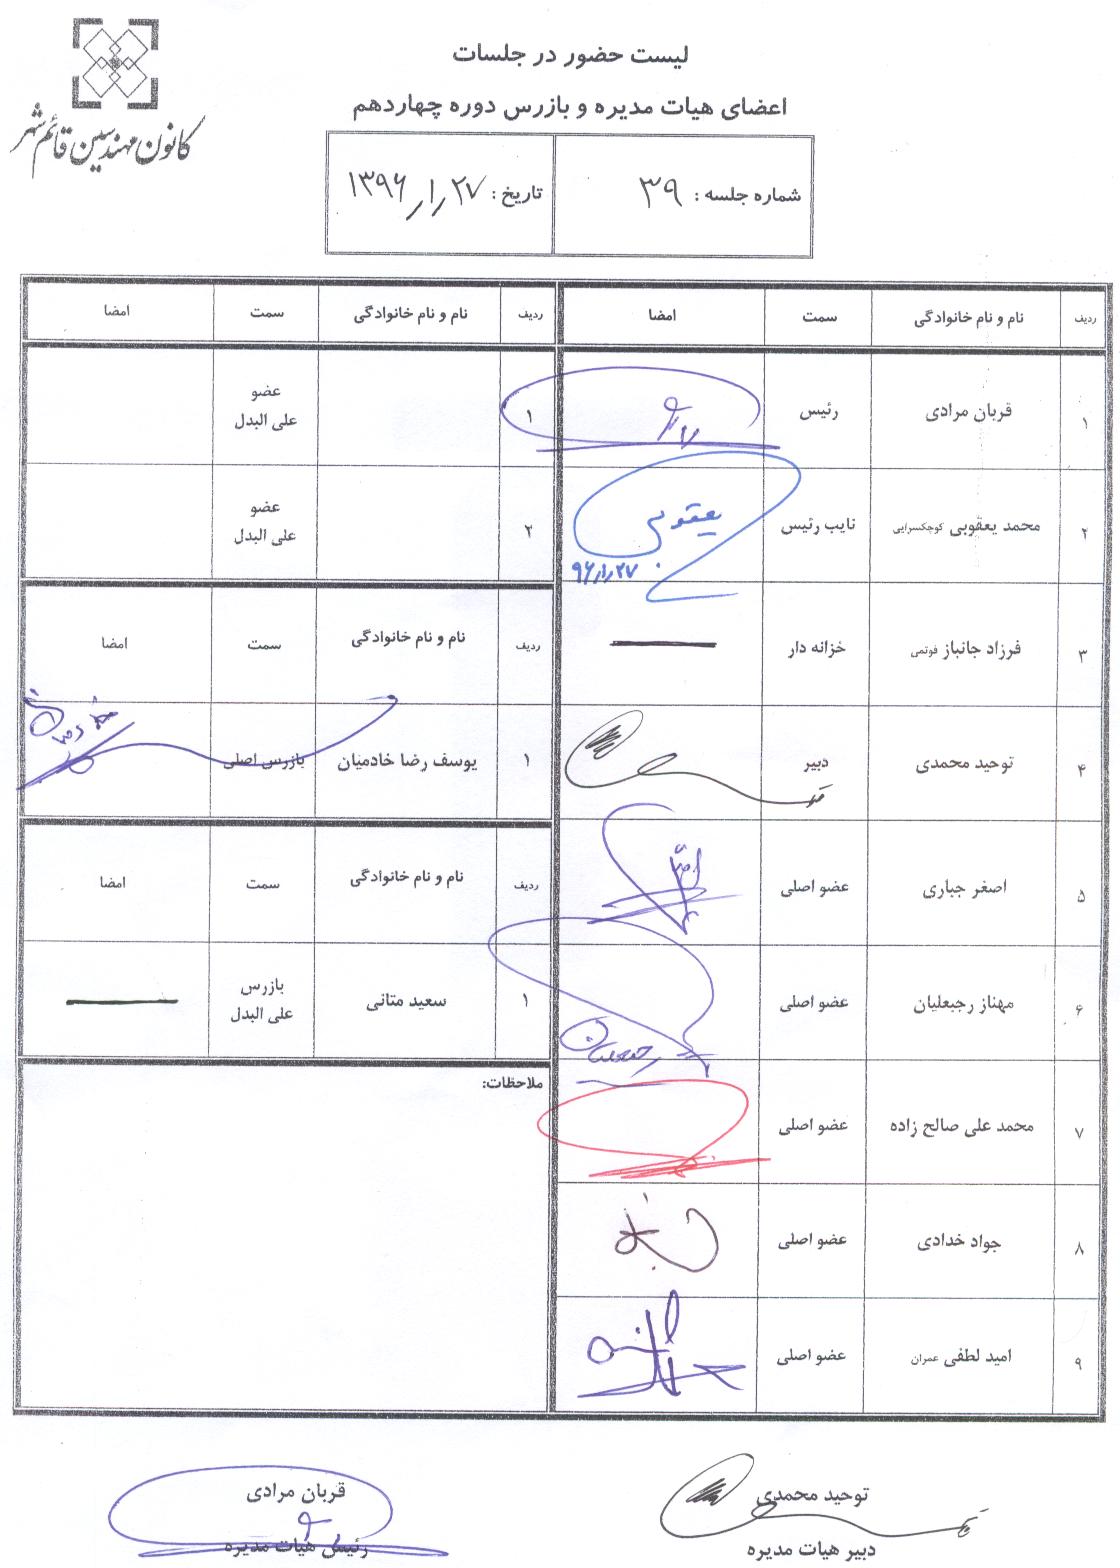 کانون مهندسین قائم شهر
لیست حضور در جلسات
اعضای هیات مدیره و بازرس دوره چهاردهم
شماره جلسه : ۳۹
تاریخ : ۲۷ / ۱ / ۱۳۹۶
ردیف نام و نام خانوادگی سمت امضا
۱ قربان مرادی رئیس
۲ محمد یعقوبی کوچکسرایی نایب رئیس یعقوبی
۹۶/۱/۲۷
۳ فرزاد جانباز فوتمی خزانه دار
۴ توحید محمدی دبیر
۵ اصغر جباری عضو اصلی
۶ مهناز رجبعلیان عضو اصلی رجبعلیان
۷ محمد علی صالح زاده عضو اصلی
۸ جواد خدادی عضو اصلی
۹ امید لطفی عمران عضو اصلی
ردیف نام و نام خانوادگی سمت امضا
۱ عضو
علی البدل
۲ عضو
علی البدل
ردیف نام و نام خانوادگی سمت امضا
۱ یوسف رضا خادمیان بازرس اصلی
ردیف نام و نام خانوادگی سمت امضا
۱ سعید متانی بازرس
علی البدل
ملاحظات:
توحید محمدی
دبیر هیات مدیره
قربان مرادی
رئیس هیات مدیره